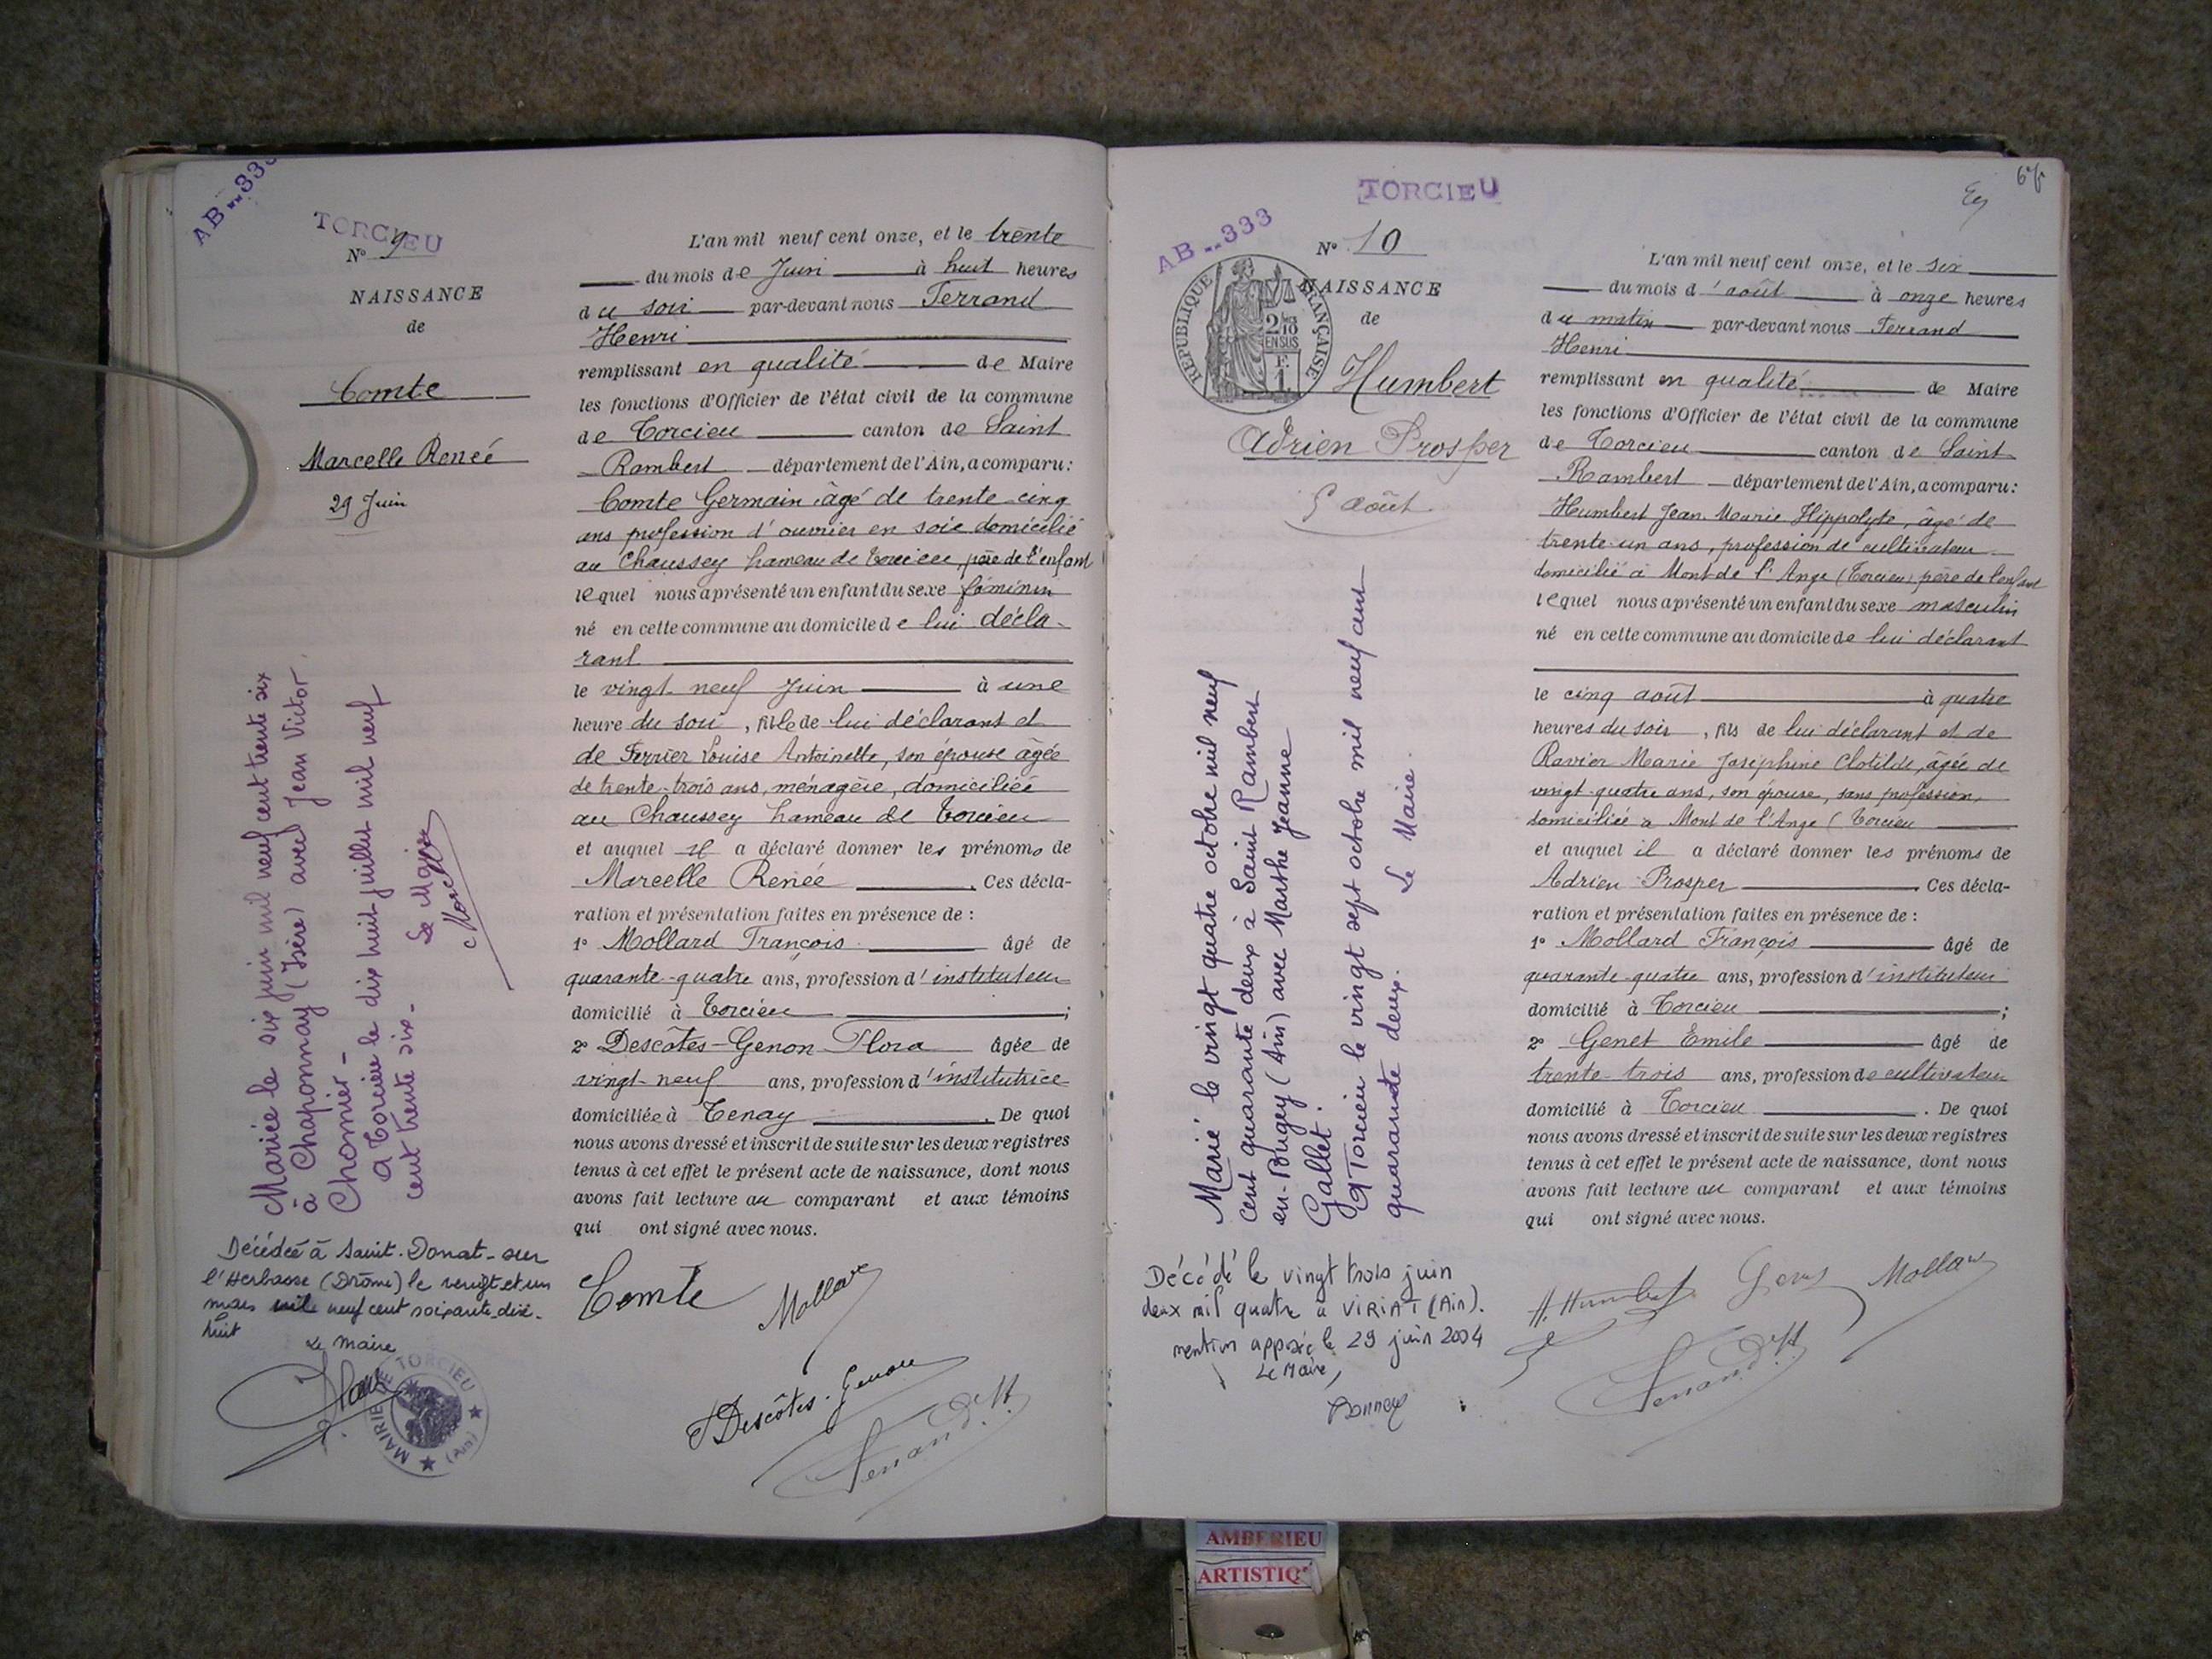 AB..333
TORCIEU
N° 9
NAISSANCE
de
Comte
Marcelle Renée
29 Juin
Mariée le six juin mil neuf cent trente six
à Chaponnay (Isère) avec Jean Victor
Chomier-
A Torcieu le dix huit juillet mil neuf
cent trente six-
Le Maire
Décédée à Saint-Donat-sur
l'Herbasse (Drôme) le vingt et un
mars mil neuf cent soixante-dix-
huit
Le Maire
MAIRIE DE TORCIEU
(Ain)
L'an mil neuf cent onze, et le trente
du mois de Juin à huit heures
du soir par-devant nous Ferrand
Henri
remplissant en qualité de Maire
les fonctions d'Officier de l'état civil de la commune
de Torcieu canton de Saint
Rambert département de l'Ain, a comparu:
Comte Germain âgé de trente-cinq
ans profession d'ouvrier en soie domicilié
au Chaussey hameau de Torcieu, père de l'enfant
lequel nous a présenté un enfant du sexe féminin
né en cette commune au domicile de lui décla-
rant
le vingt-neuf Juin à une
heure du soir, fille de lui déclarant et
de Ferrier Louise Antoinette, son épouse âgée
de trente-trois ans, ménagère, domiciliée
au Chaussey hameau de Torcieu
et auquel il a déclaré donner les prénoms de
Marcelle Renée. Ces décla-
ration et présentation faites en présence de:
1° Mollard François âgé de
quarante-quatre ans, profession d'instituteur
domicilié à Torcieu;
2° Descôtes-Genon Flora âgée de
vingt-neuf ans, profession d'institutrice
domiciliée à Tenay. De quoi
nous avons dressé et inscrit de suite sur les deux registres
tenus à cet effet le présent acte de naissance, dont nous
avons fait lecture au comparant et aux témoins
qui ont signé avec nous.
Comte
Mollard
F Descôtes-Genon
Ferrand H.
TORCIEU
AB..333
N° 10
NAISSANCE
de
RÉPUBLIQUE FRANÇAISE
Humbert
Adrien Prosper
5 août
Marié le vingt quatre octobre mil neuf
cent quarante deux à Saint Rambert
en-Bugey (Ain) avec Marthe Jeanne
Gallet.
A Torcieu le vingt sept octobre mil neuf cent
quarante deux. Le Maire.
Décédé le vingt trois juin
deux mil quatre à VIRIAT (Ain).
mention apposée le 29 juin 2004
Le Maire,
L'an mil neuf cent onze, et le six
du mois d'août à onze heures
du matin par-devant nous Ferrand
Henri
remplissant en qualité de Maire
les fonctions d'Officier de l'état civil de la commune
de Torcieu canton de Saint
Rambert département de l'Ain, a comparu:
Humbert Jean Marie Hippolyte, âgé de
trente-un ans, profession de cultivateur
domicilié à Mont de l'Ange (Torcieu) père de l'enfant
lequel nous a présenté un enfant du sexe masculin
né en cette commune au domicile de lui déclarant
le cinq août à quatre
heures du soir, fils de lui déclarant et de
Ravier Marie Joséphine Clotilde, âgée de
vingt-quatre ans, son épouse, sans profession,
domiciliée à Mont de l'Ange (Torcieu
et auquel il a déclaré donner les prénoms de
Adrien Prosper. Ces décla-
ration et présentation faites en présence de:
1° Mollard François âgé de
quarante-quatre ans, profession d'instituteur
domicilié à Torcieu;
2° Genet Emile âgé de
trente-trois ans, profession de cultivateur
domicilié à Torcieu. De quoi
nous avons dressé et inscrit de suite sur les deux registres
tenus à cet effet le présent acte de naissance, dont nous
avons fait lecture au comparant et aux témoins
qui ont signé avec nous.
H. Humbert
Mollard
Ferrand H.
AMBERIEU
ARTISTIQ